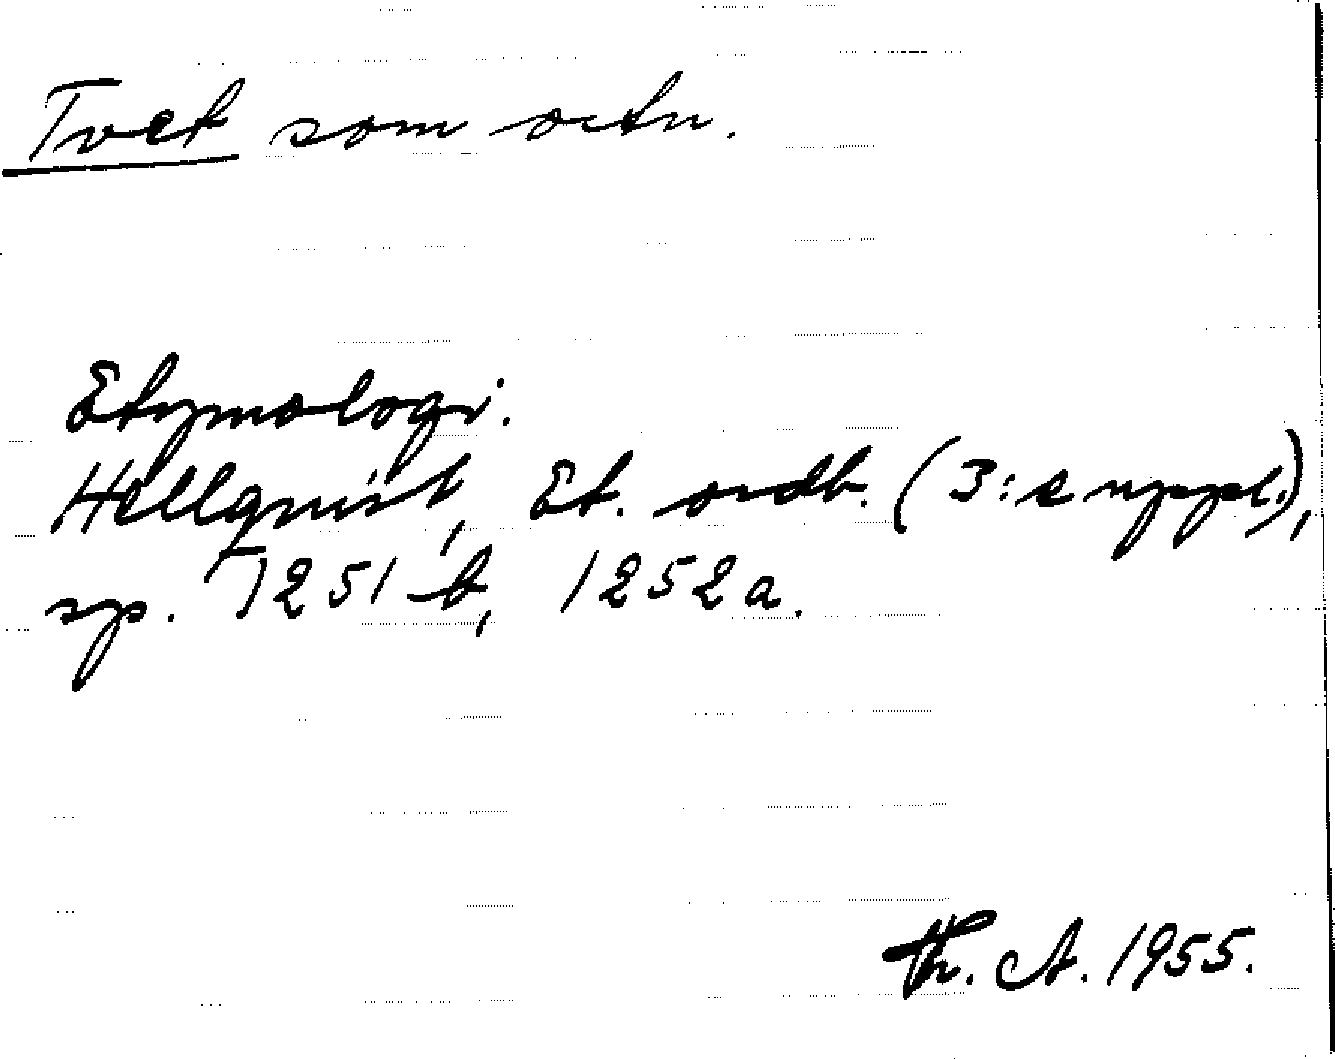 Tvet som ortn.
Etymologi.
Hellquist, Et. ordb. (3:e uppl.),
sp. 1251 b, 1252 a.
Th. A. 1955.